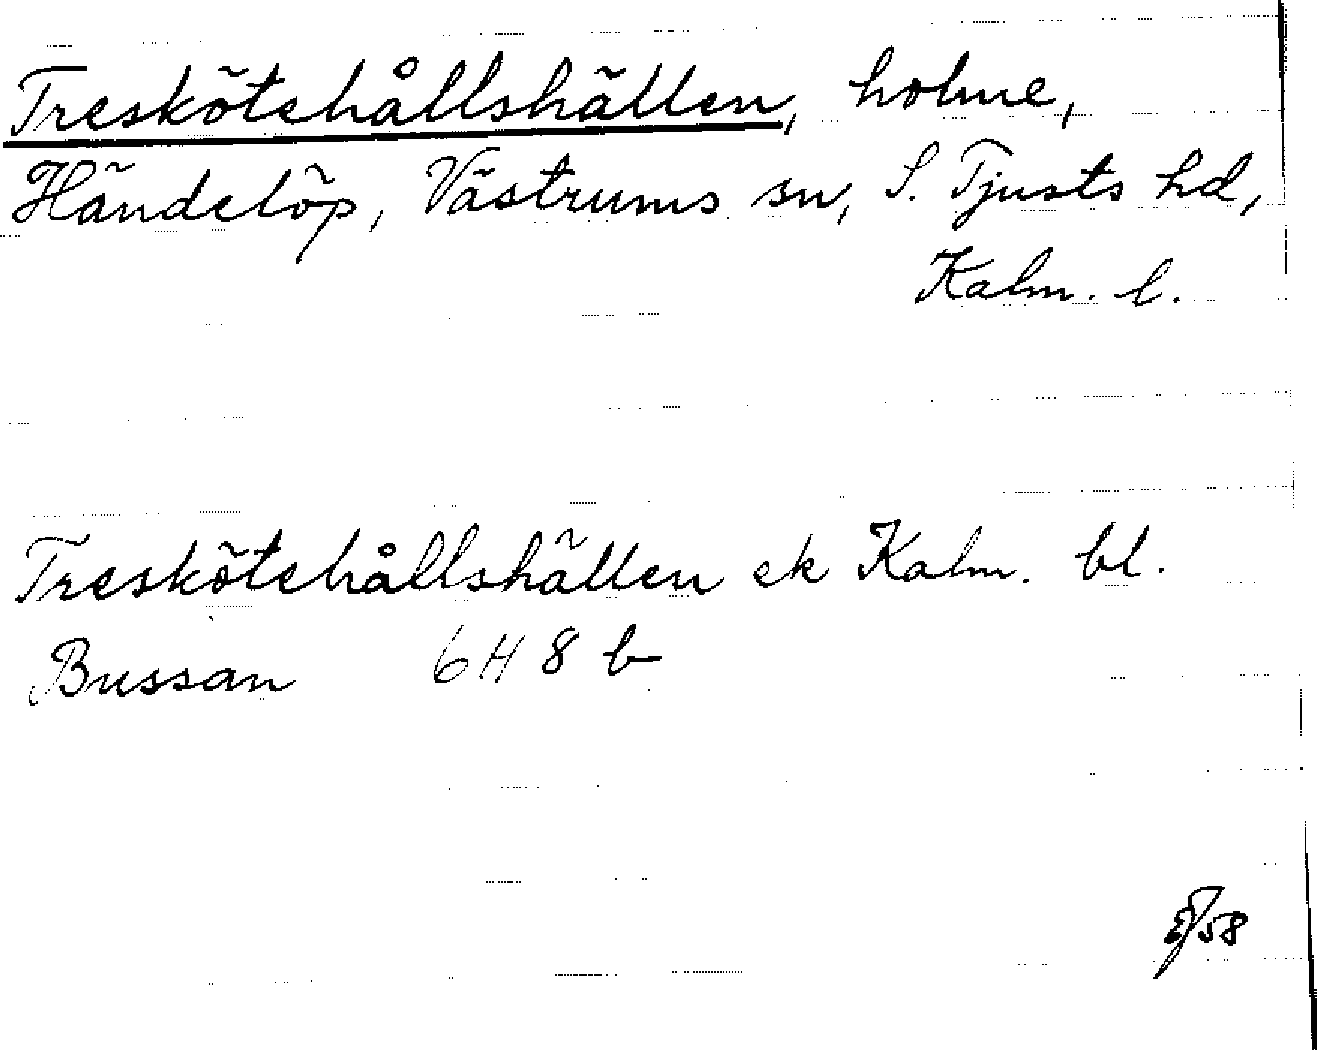 Treskötehållshällen, holme,
Händelöp, Västrums sn, S. Tjusts hd,
Kalm. l.
Treskötehållshällen ek Kalm. bl.
Bussan 6H 8 b
58